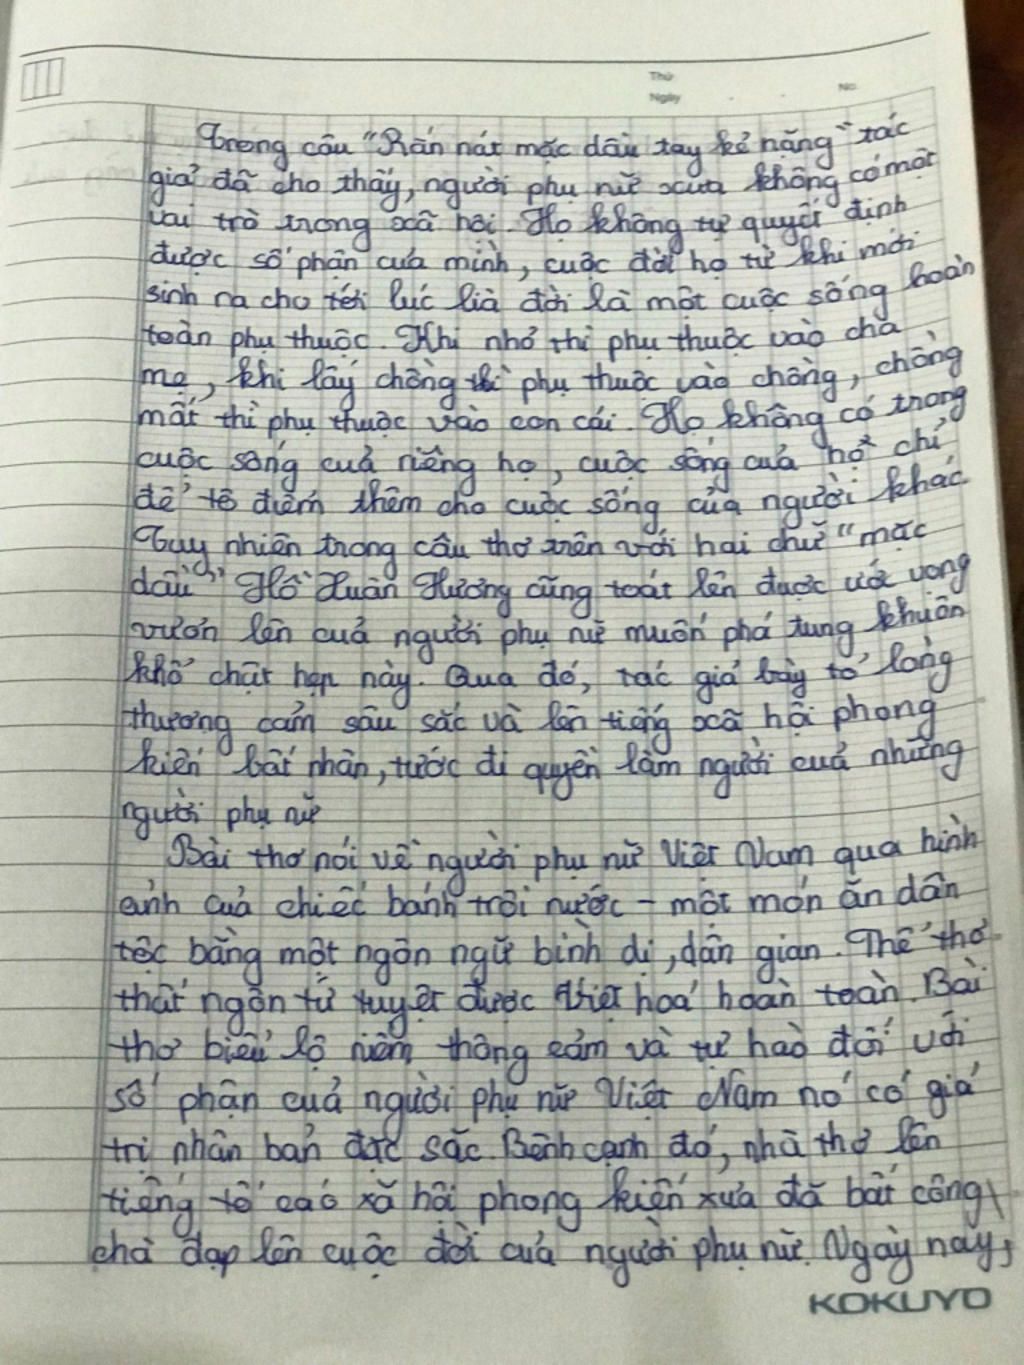 Thứ
Ngày
No.
Trong câu "Rắn nát mặc dầu tay kẻ nặng" tác
giả đã cho thấy, người phụ nữ xưa không có một
vai trò trong xã hội. Họ không tự quyết định
được số phận của mình, cuộc đời họ từ khi mới
sinh ra cho tới lúc lìa đời là một cuộc sống hoàn
toàn phụ thuộc. Khi nhỏ thì phụ thuộc vào cha
mẹ, khi lấy chồng thì phụ thuộc vào chồng, chồng
mất thì phụ thuộc vào con cái. Họ không có trong
cuộc sống của riêng họ, cuộc sống của họ chỉ
để tô điểm thêm cho cuộc sống của người khác.
Tuy nhiên trong câu thơ trên với hai chữ "mặc
dầu" Hồ Xuân Hương cũng toát lên được ước vọng
vươn lên của người phụ nữ muốn phá tung khuôn
khổ chật hẹp này. Qua đó, tác giả bày tỏ lòng
thương cảm sâu sắc và lên tiếng xã hội phong
kiến bất nhân, tước đi quyền làm người của những
người phụ nữ
Bài thơ nói về người phụ nữ Việt Nam qua hình
ảnh của chiếc bánh trôi nước - một món ăn dân
tộc bằng một ngôn ngữ bình dị, dân gian. Thể thơ
thất ngôn tứ tuyệt được Việt hoá hoàn toàn. Bài
thơ biểu lộ niềm thông cảm và tự hào đối với
số phận của người phụ nữ Việt Nam nó có giá
trị nhân bản đặc sắc. Bênh cạnh đó, nhà thơ lên
tiếng tố cáo xã hội phong kiến xưa đã bất công
chà đạp lên cuộc đời của người phụ nữ. Ngày nay,
KOKUYO